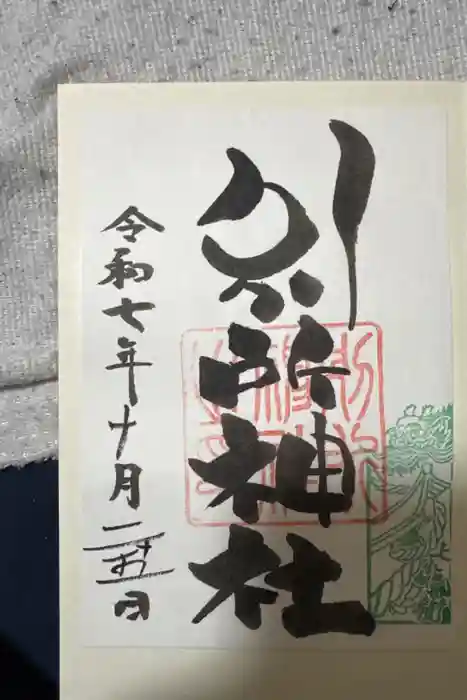 別所神社
令和七年十月二十五日